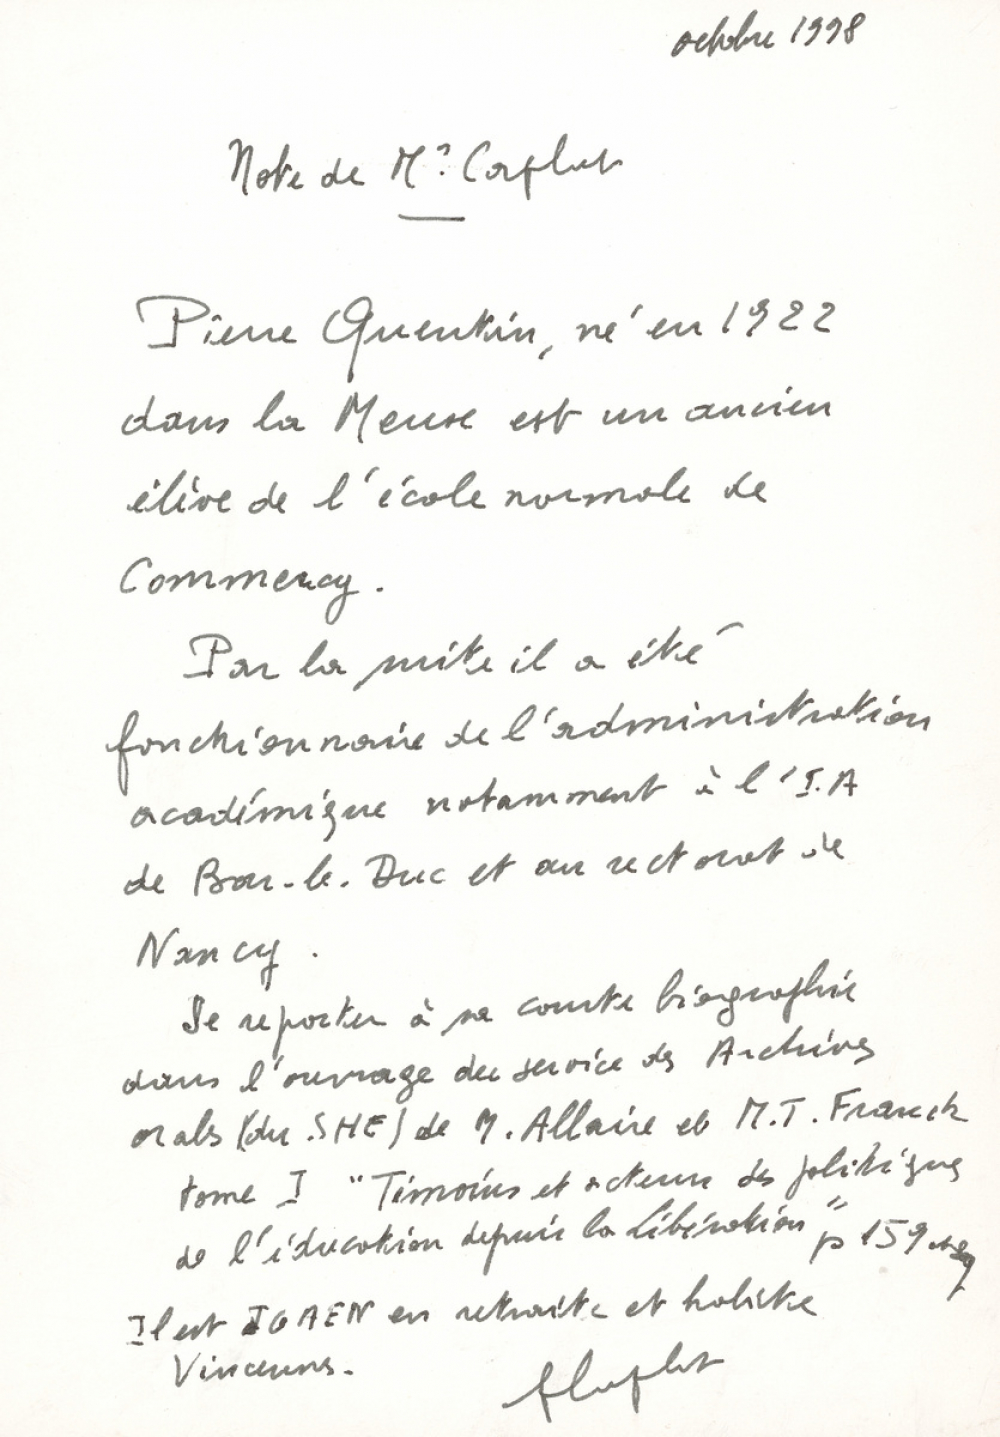 octobre 1998
Note de Mr. Caplat
Pierre Quentin, né en 1922
dans la Meuse est un ancien
élève de l'école normale de
Commercy.
Par la suite il a été
fonctionnaire de l'administration
académique notamment à l'I.A
de Bar-le-Duc et au rectorat de
Nancy.
Se reporter à sa courte biographie
dans l'ouvrage du service des Archives
orales (du SHE) de M. Allaire et M.T. Franck
tome I "Témoins et acteurs des politiques
de l'éducation depuis la Libération" p 159 et sq
Il est IGAEN en retraite et habite
Vincennes.